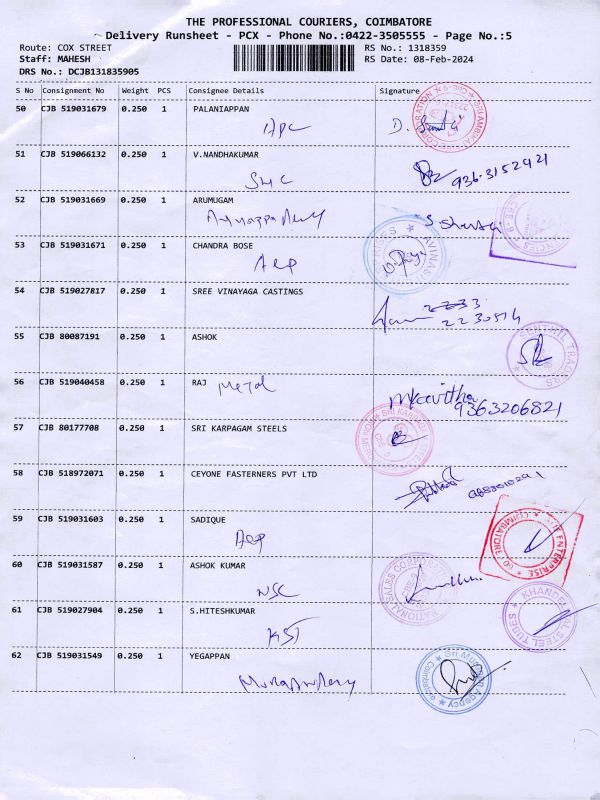 THE PROFESSIONAL COURIERS, COIMBATORE
Delivery Runsheet - PCX - Phone No.:0422-3505555 - Page No.:5
Route: COX STREET RS No.: 1318359
Staff: MAHESH RS Date: 08-Feb-2024
DRS No.: DCJB131835905
S No Consignment No Weight PCS Consignee Details Signature
50 CJB 519031679 0.250 1 PALANIAPPAN
APC D.
51 CJB 519066132 0.250 1 V.NANDHAKUMAR
SHC 936-3152421
52 CJB 519031669 0.250 1 ARUMUGAM
53 CJB 519031671 0.250 1 CHANDRA BOSE
Aep
54 CJB 519027817 0.250 1 SREE VINAYAGA CASTINGS
55 CJB 80087191 0.250 1 ASHOK
CENTRAL TRADERS
56 CJB 519040458 0.250 1 RAJ
Metal
9363206821
57 CJB 80177708 0.250 1 SRI KARPAGAM STEELS
58 CJB 518972071 0.250 1 CEYONE FASTERNERS PVT LTD
59 CJB 519031603 0.250 1 SADIQUE
Aep
COIMBATORE
60 CJB 519031587 0.250 1 ASHOK KUMAR
NSC
61 CJB 519027904 0.250 1 S.HITESHKUMAR
KST
62 CJB 519031549 0.250 1 YEGAPPAN